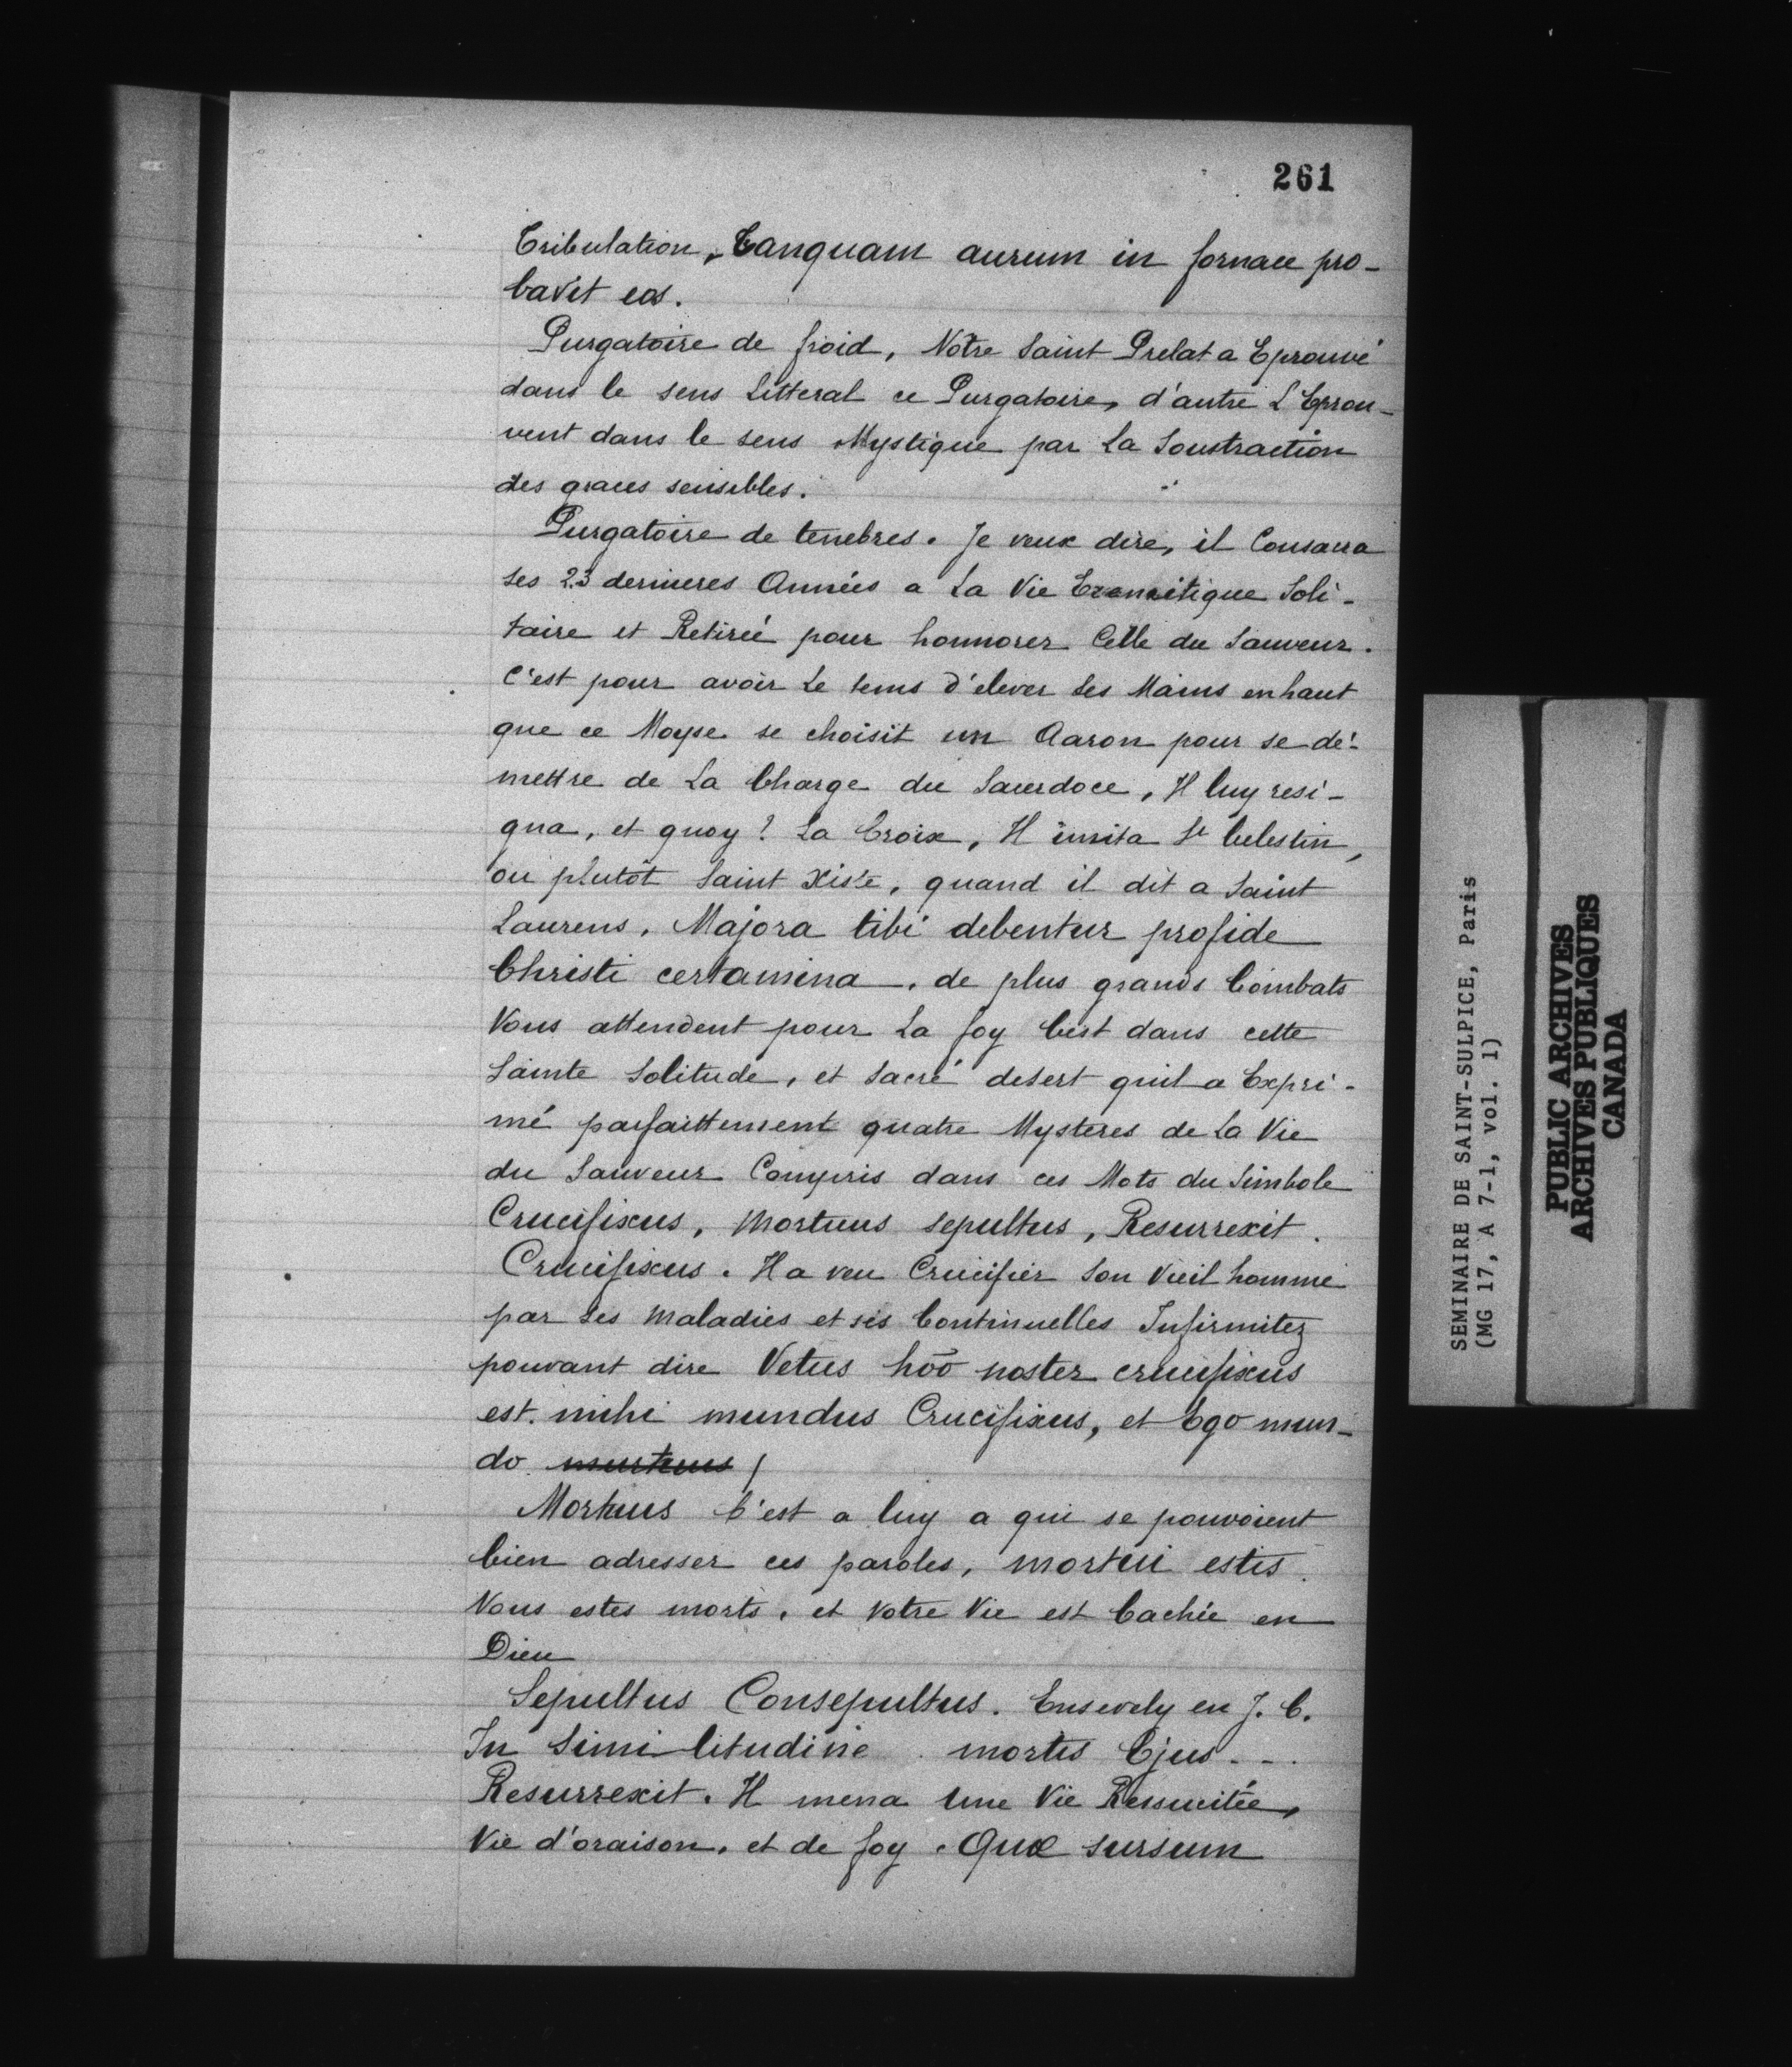 261
Tribulation, Tanquam aurum in fornace pro-
bavit eos.
Purgatoire de froid, Notre Saint Prelat a Eprouvé
dans le sens Litteral ce Purgatoire, d'autre L'Eprou-
vent dans le sens Mystique par La Soustraction
des graces sensibles.
Purgatoire de tenebres. Je veux dire, il Consacra
ses 23 dernieres Années a La Vie Eremitique Soli-
taire et Retirée pour honnorer Celle du Sauveur.
C'est pour avoir Le tems d'elever Ses Mains en haut
que ce Moyse se choisit un Aaron pour se de-
mettre de La Charge du Sacerdoce, Il luy resi-
gna, et quoy? La Croix, Il imita St Celestin,
ou plutôt Saint Xiste, quand il dit a Saint
Laurens, Majora tibi debentur profide
Christi certamina. de plus grands Combats
Vous attendent pour La foy C'est dans cette
Sainte Solitude, et Sacré desert quil a Expri-
mé parfaittement quatre Mysteres de La Vie
du Sauveur Compris dans ces Mots du Simbole
Crucifixus, Mortuus sepultus, Resurrexit.
Crucifixus. Il a veu Crucifier Son Vieil homme
par Ses Maladies et ses Continuelles Infirmitez
pouvant dire Vetus hōō noster crucifixus
est. mihi mundus Crucifixus, et Ego mun-
do murtuus /
Mortuus C'est a luy a qui se pouvoient
bien adresser ces paroles, mortui estis.
Vous estes morts, et Votre Vie est Cachée en
Dieu
Sepultus Consepultus. Ensevely en J. C.
In Simi litudine mortis Ejus...
Resurrexit. Il mena Une Vie Ressucitée,
Vie d'oraison, et de foy. Quæ sursum
SEMINAIRE DE SAINT-SULPICE, Paris
(MG 17, A 7-1, vol. 1)
PUBLIC ARCHIVES
ARCHIVES PUBLIQUES
CANADA